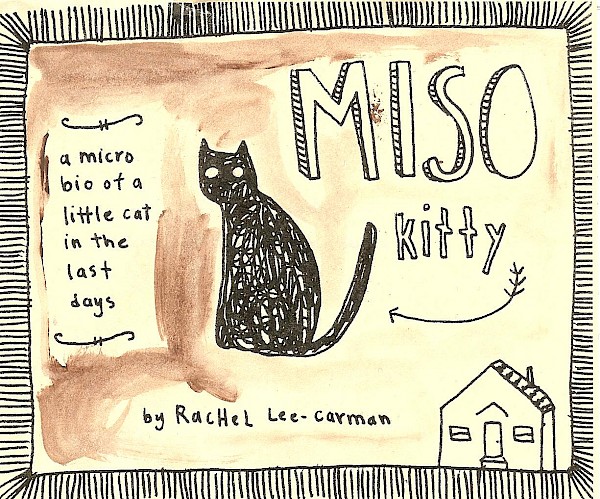 MISO
kitty
a micro
bio of a
little cat
in the
last
days
by RACHEL Lee-Carman